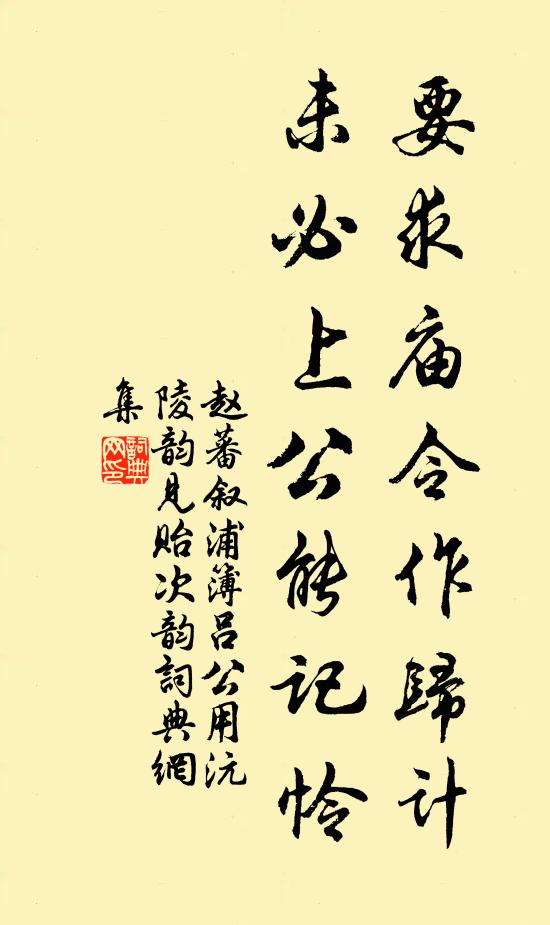 要求庙令作歸计
未必上公能记怜
赵蕃叙浦簿吕公用沅
陵韵见贻次韵詞典網
集
詞典
网印